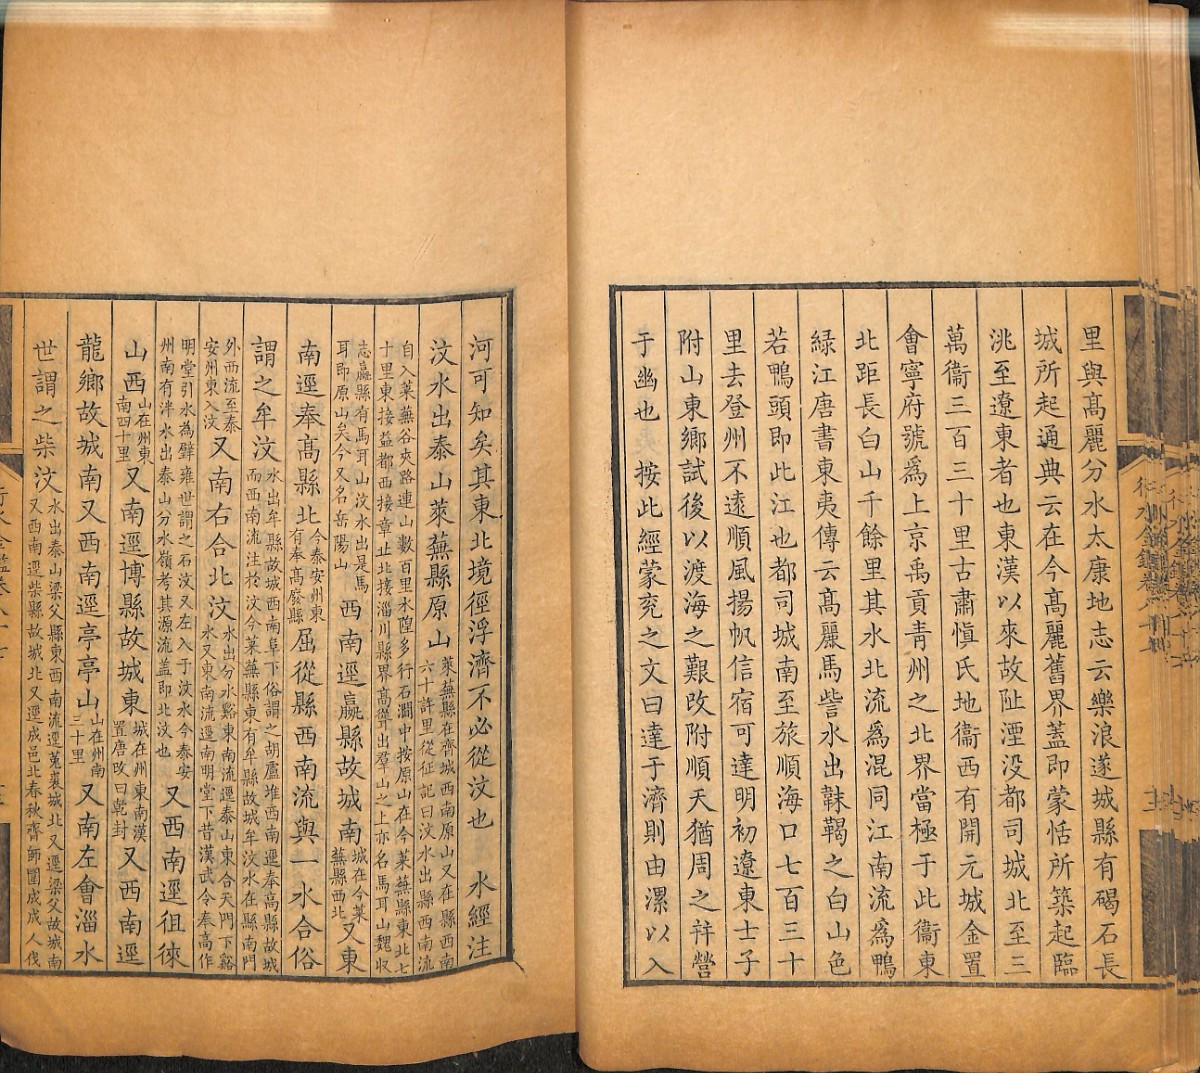 里與高麗分水太康地志云樂浪遂城縣有碣石長
城所起通典云在今高麗舊界蓋即蒙恬所築起臨
洮至遼東者也東漢以來故阯湮没都司城北至三
萬衞三百三十里古肅愼氏地衞西有開元城金置
會寧府號爲上京禹貢青州之北界當極于此衞東
北距長白山千餘里其水北流爲混同江南流爲鴨
緑江唐書東夷傳云高麗馬訾水出靺鞨之白山色
若鴨頭即此江也都司城南至旅順海口七百三十
里去登州不遠順風揚帆信宿可達明初遼東士子
附山東鄉試後以渡海之艱改附順天猶周之幷營
于幽也 按此經蒙兖之文曰達于濟則由漯以入
河可知矣其東北境徑浮濟不必從汶也 水經注
汶水出泰山萊蕪縣原山萊蕪縣在齊城西南原山又在縣西南六十許里從征記曰汶水出縣西南流
自入萊蕪谷夾路連山數百里水隍多行石澗中按原山在今萊蕪縣東北七十里東接益都西接章丘北接淄川縣界高聳出羣山之上亦名馬耳山魏収
志嬴縣有馬耳山汶水出是馬耳即原山矣今又名岳陽山 西南逕嬴縣故城南城在今萊蕪縣西北又東
南逕奉高縣北今泰安州東有奉高廢縣屈從縣西南流與一水合俗
謂之牟汶水出牟縣故城西南阜下俗謂之胡盧堆西南逕奉高縣故城而西南流注於汶今萊蕪縣東有牟縣故城牟汶水在縣南門
外西流至泰安州東入汶又南右合北汶水出分水谿東南流逕泰山東合天門下谿水又東南流逕南明堂下昔漢武令奉高作
明堂引水為辟雍世謂之石汶又左入于汶水今泰安州南有泮水出泰山分水嶺考其源流盖即北汶也 又西南逕徂徠
山西山在州東南四十里又南逕博縣故城東城在州東南漢置唐改曰乾封又西南逕
龍鄉故城南又西南逕亭亭山山在州南三十里又南左會淄水
世謂之柴汶水出泰山梁父縣東西南流逕菟裘城北又逕梁父故城南又西南逕柴縣故城北又逕成邑北春秋齊師圍成成人伐